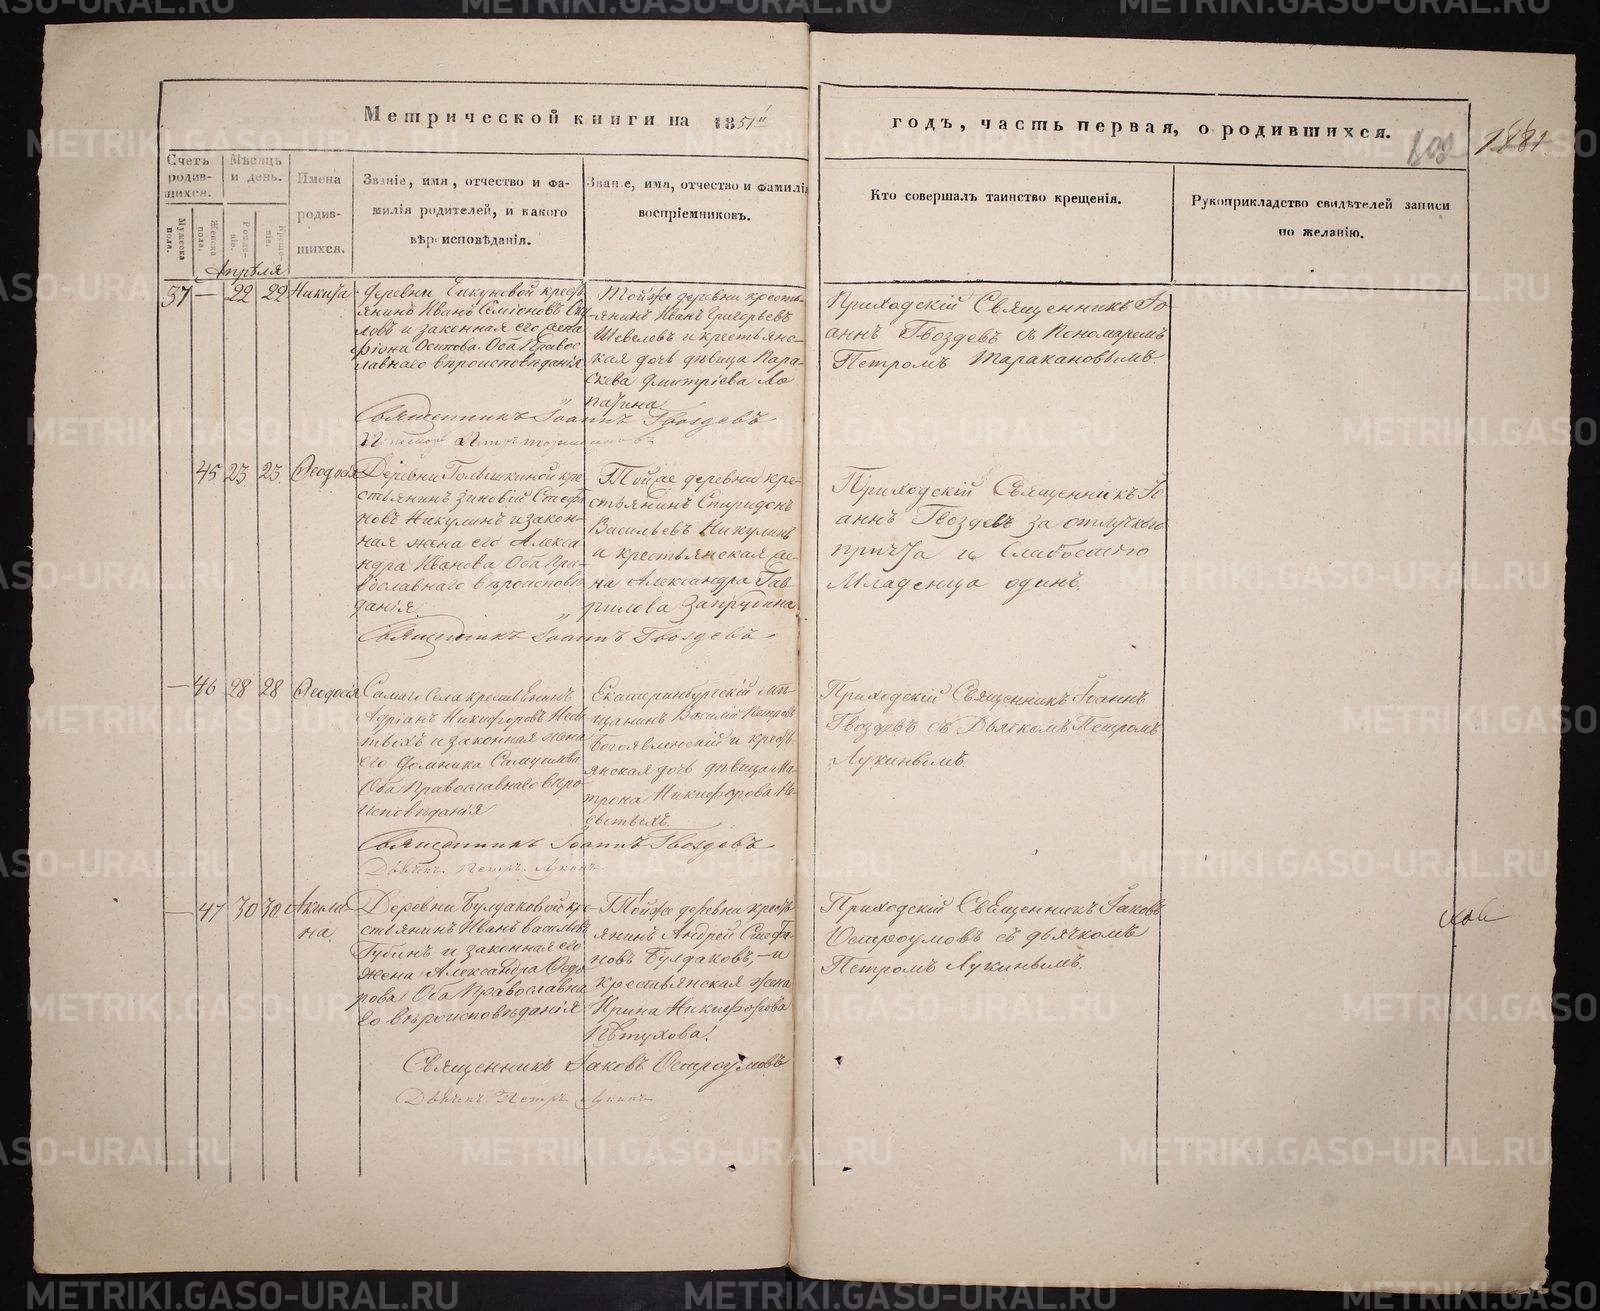 Метрической книги на 1851й
годъ, часть первая, о родившихся.
Счетъ родившихся.
Мѣсяцъ и день.
Имена родившихся.
Званіе, имя, отчество и фамилія родителей, и какого вѣроисповѣданія.
Званіе, имя, отчество и фамилія воспріемниковъ.
Кто совершалъ таинство крещенія.
Рукоприкладство свидѣтелей записи по желанію.
Мужеска пола.
Женска пола.
Рожденіе.
Крещеніе.
Апрѣля
37 — 22 22 Никита
Деревни крестьянинъ Иванъ Семіоновъ
и законная его жена
Осипова. Оба Православнаго вѣроисповѣданія
Тойже деревни крестьянинъ
Иванъ Григорьевъ
Шевелевъ и крестьянская
дочь дѣвица Параскева
Дмитріева Лопатина
Приходскій Священникъ Іоаннъ
Гвоздевъ съ Пономаремъ
Петромъ Таракановымъ
Священникъ Іоаннъ Гвоздевъ
45 23 23 Ѳеодосія
Деревни кре-
стьянинъ Зиновій Стефановъ
Никулинъ и законная
жена его Александра
Иванова Оба Православнаго
вѣроисповѣданія
Тойже деревни кре-
стьянинъ Спиридонъ
Васильевъ Никулинъ
и крестьянская жена
Александра Гаврилова
Запрудина
Приходскій Священникъ Іоаннъ
Гвоздевъ за отлучкою
причта и слабостію
Младенца одинъ.
Священникъ Іоаннъ Гвоздевъ
— 46 28 28 Ѳеодосія
Самаго Села крестьянинъ
Адріанъ Никифоровъ Несытыхъ
и законная жена
его Домника Самуилова
Оба Православнаго вѣроисповѣданія
Екатеринбургскій мѣщанинъ
Василій Петровъ
Богоявленскій и крестьянская
дочь дѣвица Матрона
Никифорова Несытыхъ
Приходскій Священникъ Іоаннъ
Гвоздевъ съ Дьячкомъ Петромъ
Лукинымъ
Священникъ Іоаннъ Гвоздевъ
Дьячекъ Петръ Лукинъ
— 47 30 30 Акилина.
Деревни Булдаковой кре-
стьянинъ Иванъ Васильевъ
Губинъ и законная его
жена Александра Ѳедорова
Оба Православнаго
вѣроисповѣданія
Тойже деревни крестьянинъ
Андрей Стефановъ
Булдаковъ, — и
крестьянская жена
Ирина Никифорова
Пѣтухова.
Приходскій Священникъ Іаковъ
Остроумовъ съ дьячкомъ
Петромъ Лукинымъ.
Священникъ Іаковъ Остроумовъ
Дьячекъ Петръ Лукинъ
METRIKI.GASO-URAL.RU